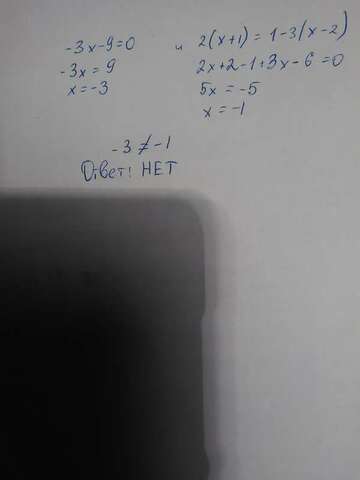 -3x-9=0 и 2(x+1)=1-3(x-2)
-3x=9 2x+2-1+3x-6=0
x=-3 5x=-5
x=-1
-3≠-1
Ответ: НЕТ